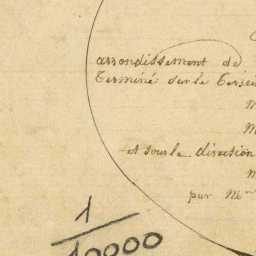 arrondissement de
Terminé sur le
M
M
et sous la direction
M
par M
1
10000